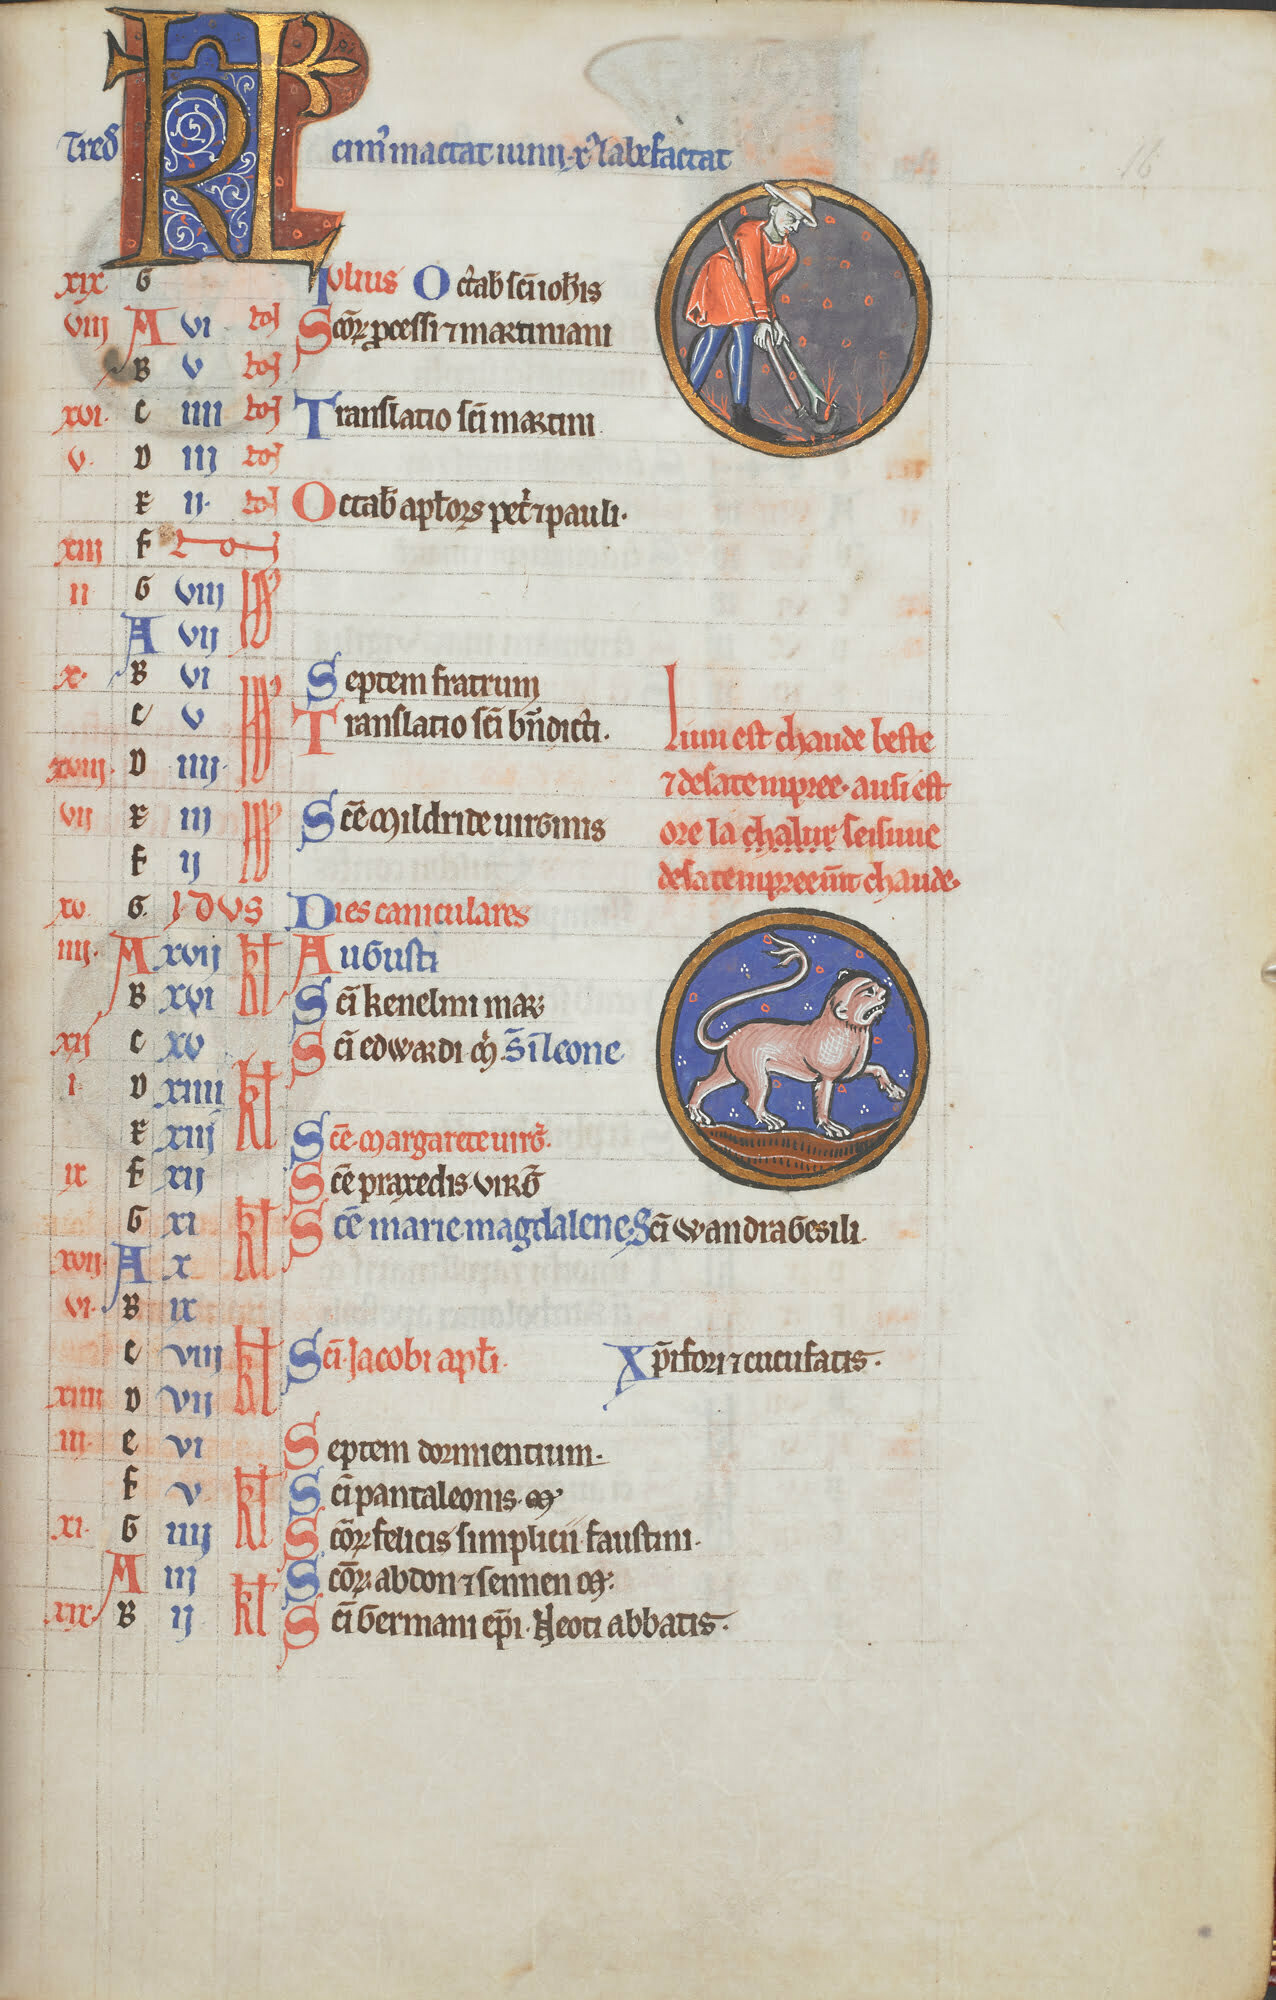 KL
Tred cim' mactat iulii x' labefactat
16
xix G Iulius Octab sci ioh'is
viii A vi No Scor processi ⁊ martiniani
B v No
xvi. C iiii No Translatio sci martini
v. D iii No
E ii. No Octab aplor petri ⁊ pauli.
xiii F No
ii G viii Id
A vii
x. B vi Id Septem fratrum
C v Translatio sci bndicti.
xviii. D iiii.
vii E iii Id Sce Mildride uirginis
F ii
xv. G. IDVS Dies caniculares
iiii. A xvii kl Augusti
B xvi Sci kenelmi mar
xii C xv Sci edwardi m' S. ilcone
i. D xiiii kl
E xiii Sce margarete uirg.
ix F xii Sce praxedis virg
G xi kl Sce marie magdalene. Sci wandragesili.
xvii. A x
vi. B ix
C viii kl Sci. Jacobi apli. Xpifori ⁊ cucufatis.
xiiii D vii
iii. E vi Septem dormientium.
F v kl Sci pantaleonis. m'
xi. G iiii Scor felicis simplicii faustini.
A iii kl Scor. abdon ⁊ sennen m'.
xix B ii Sci Germani epi. Neoti abbatis.
Liun est chaude beste
⁊ desatempree. ausi est
ore la chalur seisune
desatempreemt chaude.